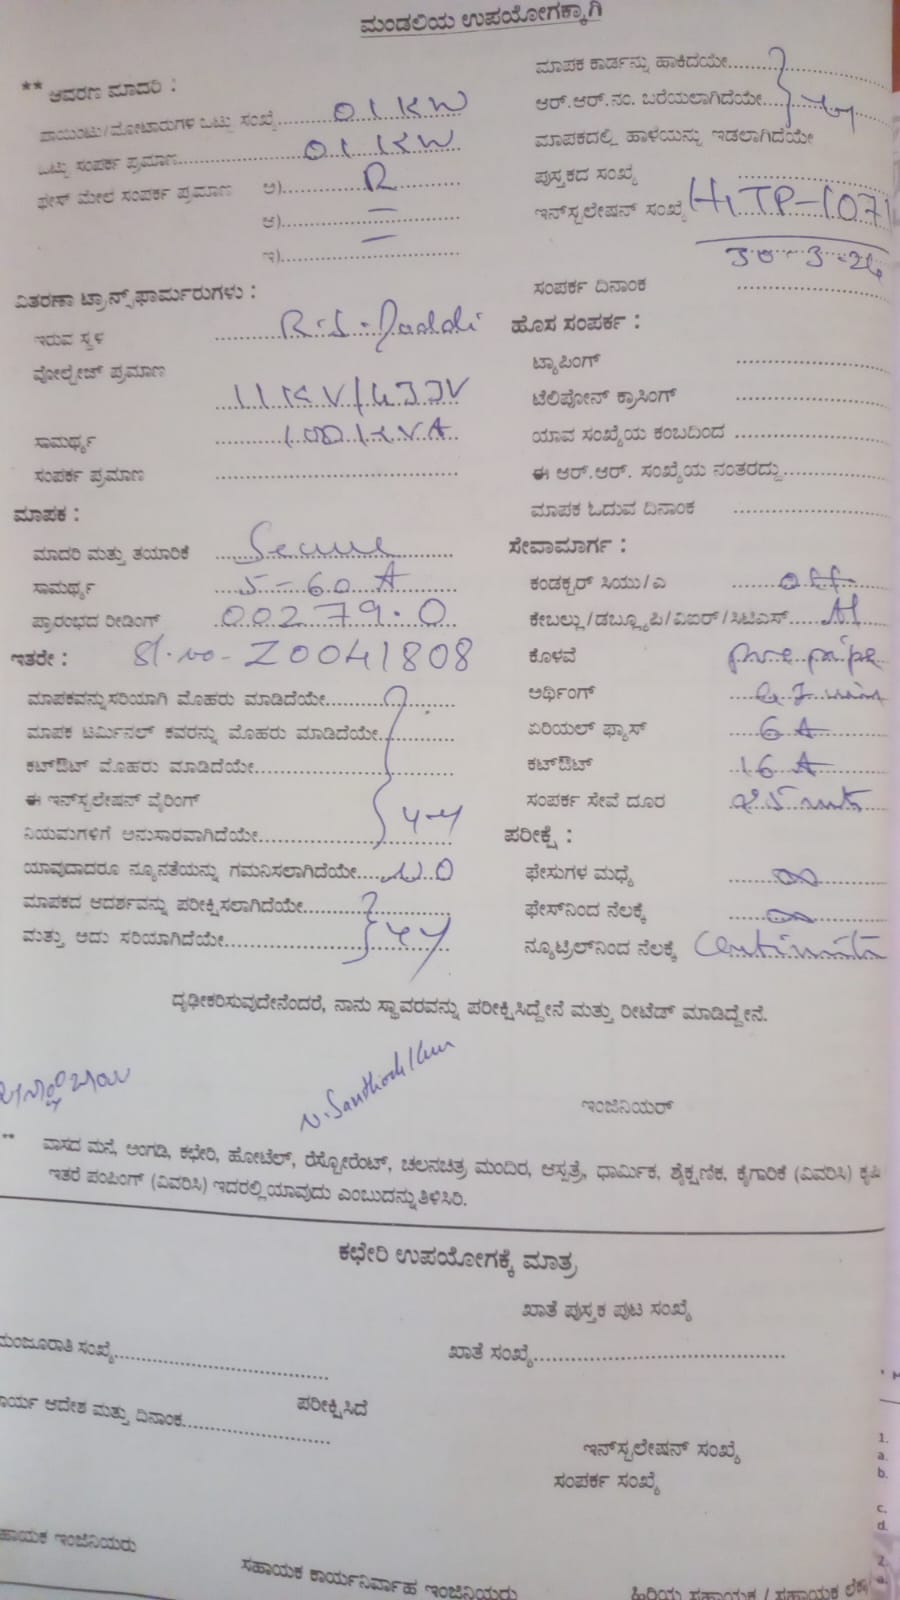 ಮಂಡಲಿಯ ಉಪಯೋಗಕ್ಕಾಗಿ
** ಆವರಣ ಮಾದರಿ :
ಪಾಯಿಂಟು/ಮೋಟಾರುಗಳ ಒಟ್ಟು ಸಂಖ್ಯೆ 01 KW
ಒಟ್ಟು ಸಂಪರ್ಕ ಪ್ರಮಾಣ 01 KW
ಫೇಸ್ ಮೇಲೆ ಸಂಪರ್ಕ ಪ್ರಮಾಣ ಅ) R
ಆ) –
ಇ) –
ಮಾಪಕ ಕಾರ್ಡನ್ನು ಹಾಕಿದೆಯೇ
ಆರ್.ಆರ್.ನಂ. ಬರೆಯಲಾಗಿದೆಯೇ
ಮಾಪಕದಲ್ಲಿ ಹಾಳೆಯನ್ನು ಇಡಲಾಗಿದೆಯೇ
ಪುಸ್ತಕದ ಸಂಖ್ಯೆ
ಇನ್‌ಸ್ಟಲೇಷನ್ ಸಂಖ್ಯೆ HTP-1071
30-3-26
ಸಂಪರ್ಕ ದಿನಾಂಕ
ವಿತರಣಾ ಟ್ರಾನ್ಸ್‌ಫಾರ್ಮರುಗಳು :
ಇರುವ ಸ್ಥಳ R.S.
ವೋಲ್ಟೇಜ್ ಪ್ರಮಾಣ
11KV/433V
ಸಾಮರ್ಥ್ಯ 100 KVA
ಸಂಪರ್ಕ ಪ್ರಮಾಣ
ಹೊಸ ಸಂಪರ್ಕ :
ಟ್ಯಾಪಿಂಗ್
ಟೆಲಿಪೋನ್ ಕ್ರಾಸಿಂಗ್
ಯಾವ ಸಂಖ್ಯೆಯ ಕಂಬದಿಂದ
ಈ ಆರ್.ಆರ್. ಸಂಖ್ಯೆಯ ನಂತರದ್ದು
ಮಾಪಕ ಓದುವ ದಿನಾಂಕ
ಮಾಪಕ :
ಮಾದರಿ ಮತ್ತು ತಯಾರಿಕೆ Secure
ಸಾಮರ್ಥ್ಯ 5-60 A
ಪ್ರಾರಂಭದ ರೀಡಿಂಗ್ 00279.0
ಇತರೇ : Sl.no- Z0041808
ಮಾಪಕವನ್ನು ಸರಿಯಾಗಿ ಮೊಹರು ಮಾಡಿದೆಯೇ
ಮಾಪಕ ಟರ್ಮಿನಲ್ ಕವರನ್ನು ಮೊಹರು ಮಾಡಿದೆಯೇ
ಕಟ್‌ಔಟ್ ಮೊಹರು ಮಾಡಿದೆಯೇ
ಈ ಇನ್‌ಸ್ಟಲೇಷನ್ ವೈರಿಂಗ್
ನಿಯಮಗಳಿಗೆ ಅನುಸಾರವಾಗಿದೆಯೇ
ಯಾವುದಾದರೂ ನ್ಯೂನತೆಯನ್ನು ಗಮನಿಸಲಾಗಿದೆಯೇ NO
ಮಾಪಕದ ಆದರ್ಶವನ್ನು ಪರೀಕ್ಷಿಸಲಾಗಿದೆಯೇ
ಮತ್ತು ಅದು ಸರಿಯಾಗಿದೆಯೇ
ಸೇವಾಮಾರ್ಗ :
ಕಂಡಕ್ಟರ್ ಸಿಯು/ಎ
ಕೇಬಲ್ಲು/ಡಬ್ಲ್ಯೂಪಿ/ವಿಐರ್/ಸಿಟಿಎಸ್ Al
ಕೊಳವೆ pvc pipe
ಅರ್ಥಿಂಗ್ G.I wire
ಏರಿಯಲ್ ಫ್ಯಾಸ್ 6 A
ಕಟ್‌ಔಟ್ 16 A
ಸಂಪರ್ಕ ಸೇವೆ ದೂರ
ಪರೀಕ್ಷೆ :
ಫೇಸುಗಳ ಮಧ್ಯೆ ∞
ಫೇಸ್‌ನಿಂದ ನೆಲಕ್ಕೆ ∞
ನ್ಯೂಟ್ರಿಲ್‌ನಿಂದ ನೆಲಕ್ಕೆ
ದೃಢೀಕರಿಸುವುದೇನೆಂದರೆ, ನಾನು ಸ್ಥಾವರವನ್ನು ಪರೀಕ್ಷಿಸಿದ್ದೇನೆ ಮತ್ತು ರೀಟೆಡ್ ಮಾಡಿದ್ದೇನೆ.
ಇಂಜಿನಿಯರ್
** ವಾಸದ ಮನೆ, ಅಂಗಡಿ, ಕಛೇರಿ, ಹೋಟೆಲ್, ರೆಸ್ಟೋರೆಂಟ್, ಚಲನಚಿತ್ರ ಮಂದಿರ, ಆಸ್ಪತ್ರೆ, ಧಾರ್ಮಿಕ, ಶೈಕ್ಷಣಿಕ, ಕೈಗಾರಿಕೆ (ವಿವರಿಸಿ) ಕೃಷಿ
ಇತರೆ ಪಂಪಿಂಗ್ (ವಿವರಿಸಿ) ಇದರಲ್ಲಿ ಯಾವುದು ಎಂಬುದನ್ನು ತಿಳಿಸಿರಿ.
ಕಛೇರಿ ಉಪಯೋಗಕ್ಕೆ ಮಾತ್ರ
ಖಾತೆ ಪುಸ್ತಕ ಪುಟ ಸಂಖ್ಯೆ
ಮಂಜೂರಾತಿ ಸಂಖ್ಯೆ
ಖಾತೆ ಸಂಖ್ಯೆ
ಆದೇಶ ಮತ್ತು ದಿನಾಂಕ
ಪರೀಕ್ಷಿಸಿದೆ
ಇನ್‌ಸ್ಟಲೇಷನ್ ಸಂಖ್ಯೆ
ಸಂಪರ್ಕ ಸಂಖ್ಯೆ
ಇಂಜಿನಿಯರು
ಸಹಾಯಕ ಕಾರ್ಯನಿರ್ವಾಹ ಇಂಜಿನಿಯರು
ಹಿರಿಯ ಸಹಾಯಕ / ಸಹಾಯಕ